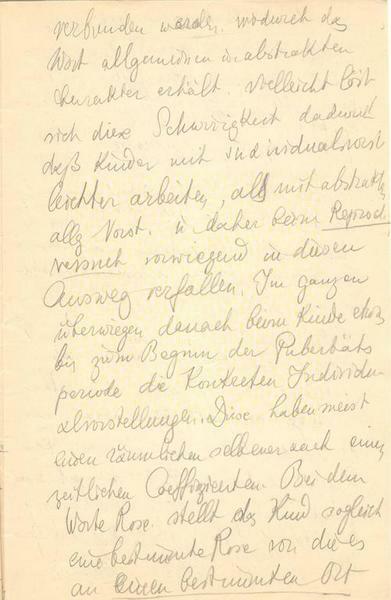 verbunden werden, wodurch das
Wort allgemeinen u. abstrakten
Charakter erhält. Vielleicht löst
sich diese Schwierigkeit dadurch
daß Kinder mit Individualvorst
leichter arbeiten, als mit abstrakt,
allg Vorst. u daher beim Reprod.
versuch vorwiegend in diesen
Ausweg verfallen. Im ganzen
überwiegen danach beim Kinde etwa
bis zum Beginn der Pubertäts
periode die konkreten Individu
alvorstellungen. Diese haben meist
einen räumlichen seltener auch einen
zeitlichen Coeffizienten. Bei dem
Worte Rose stellt das Kind sogleich
eine bestimmte Rose vor die es
an einen bestimmten Ort